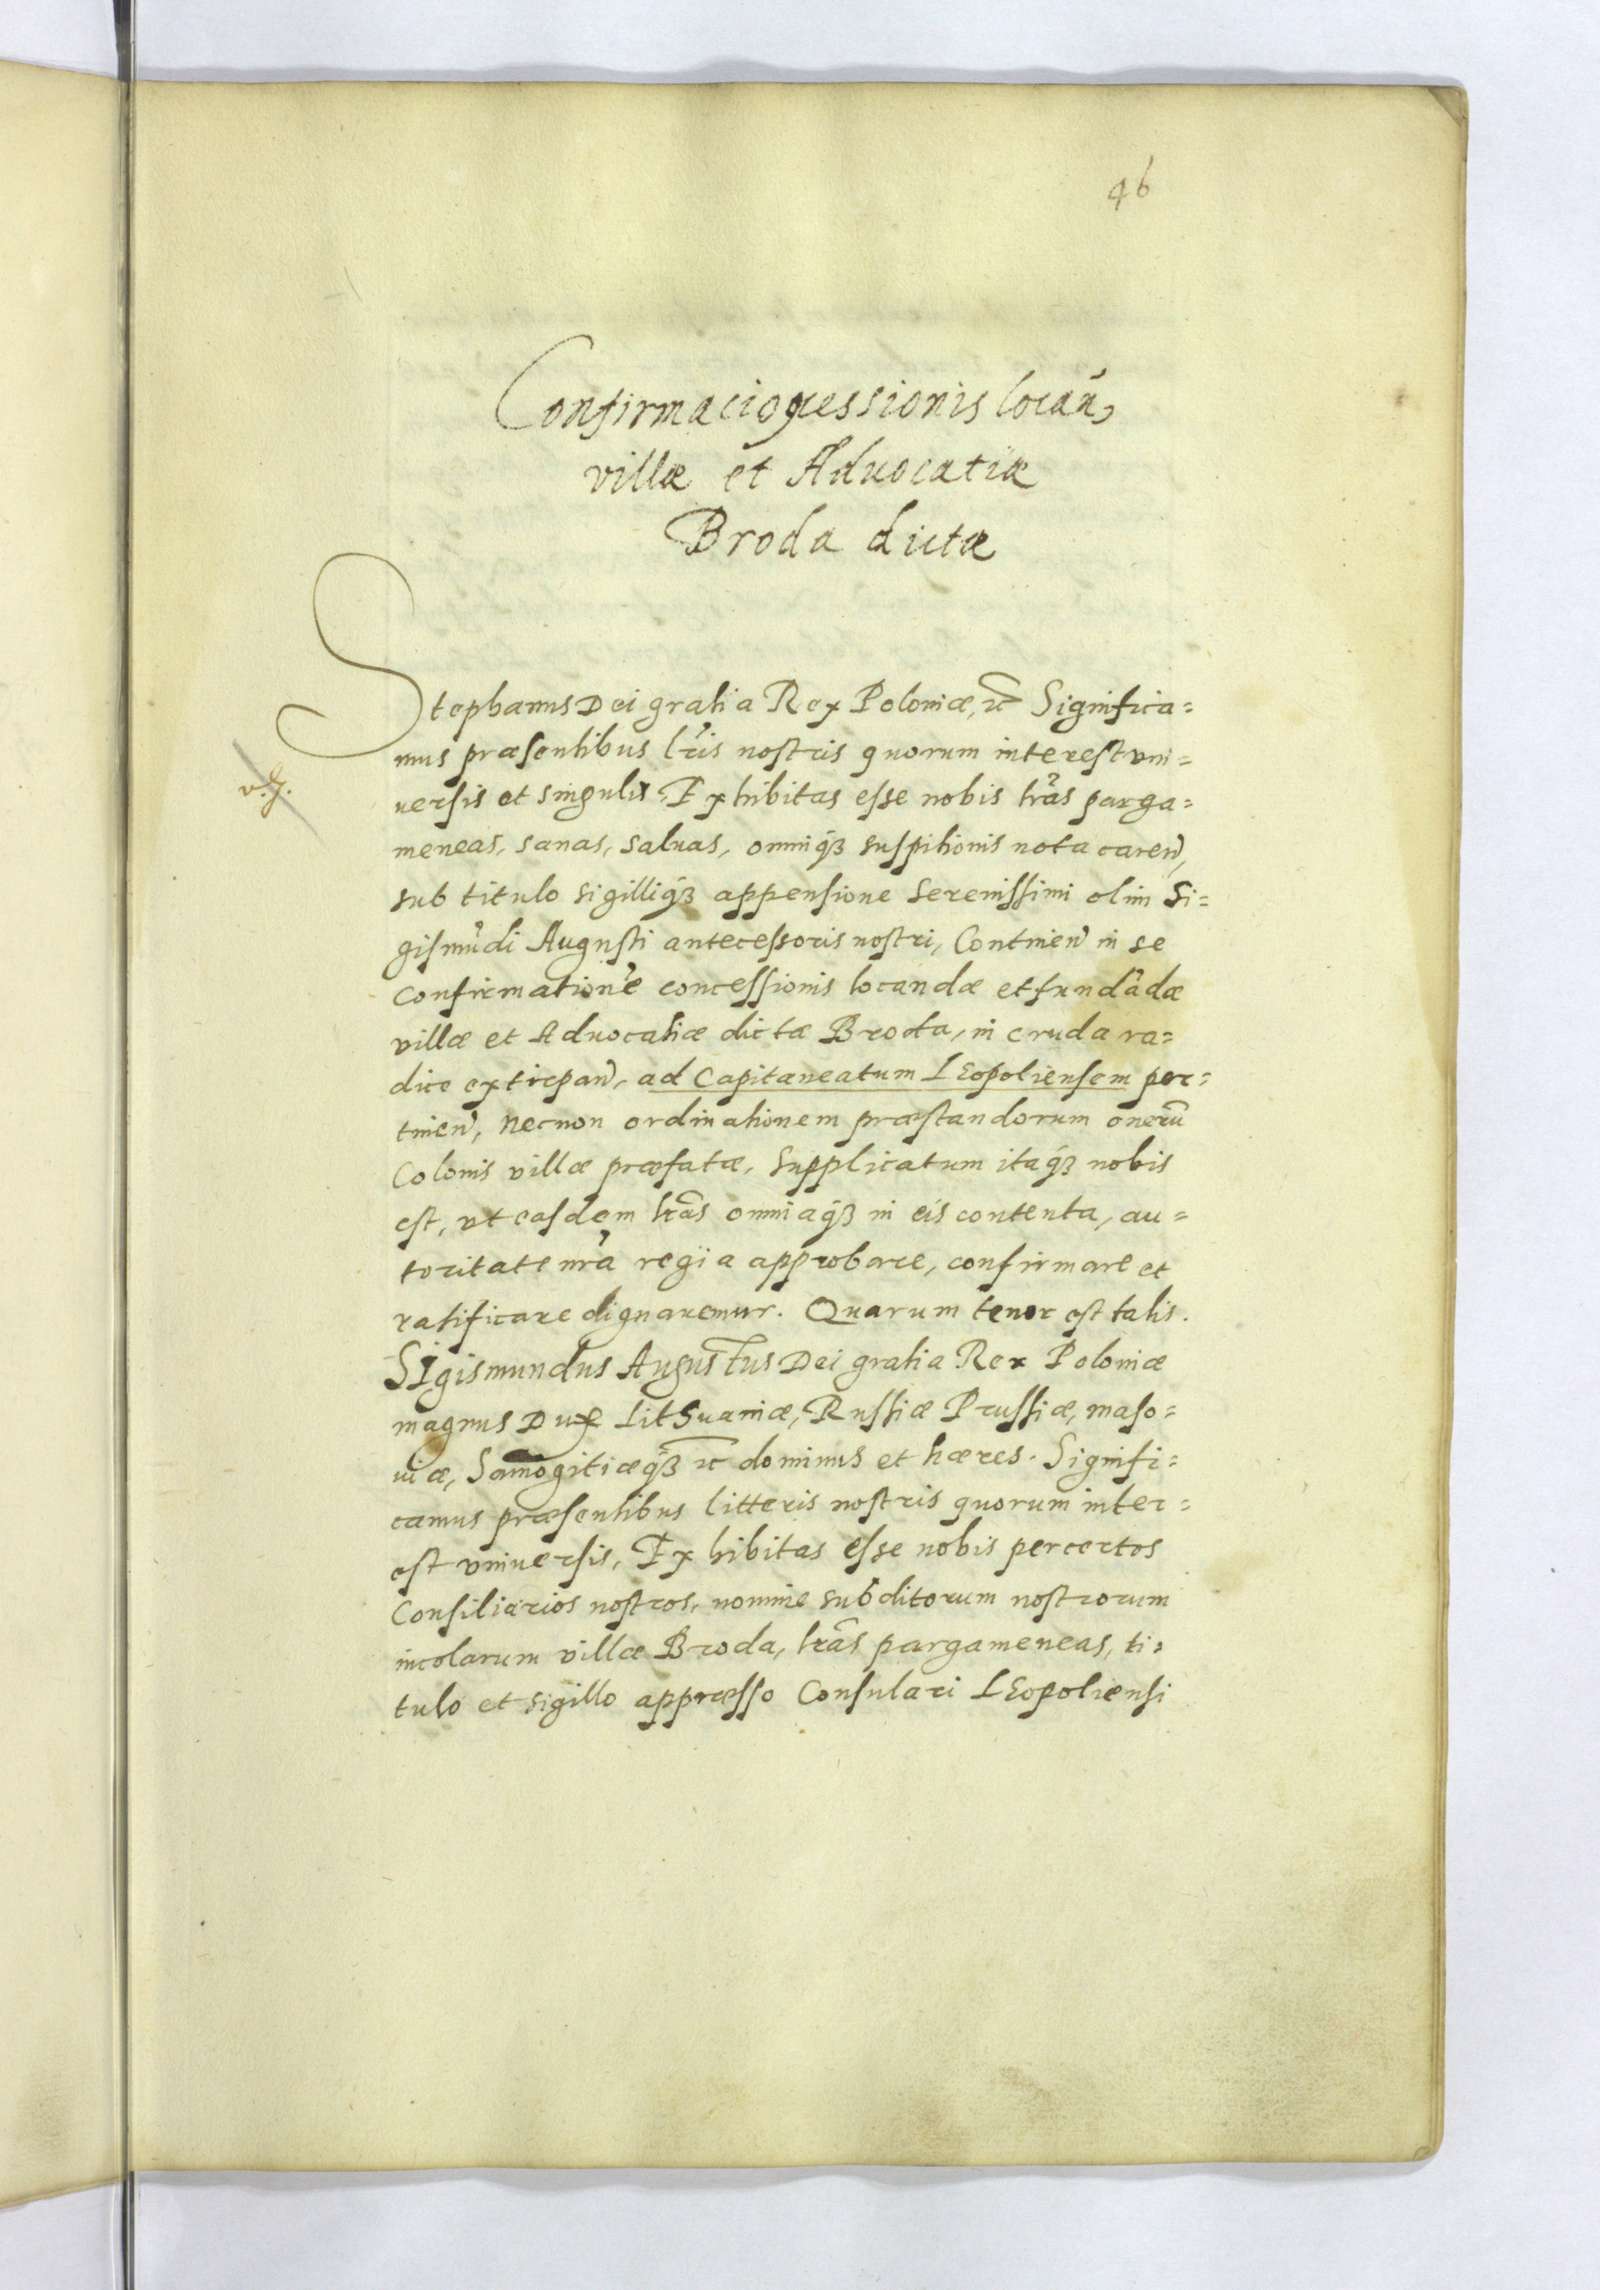 46
Confirmacio ꝯcessionis locan̄,
villæ et Aduocatiæ
Broda dictæ
Stephanus Dei gratia Rex Poloniæ, ꝛc̄ Significa=
mus præsentibus lr̄is nostris quorum interest vni=
uersis et singulis. Exhibitas esse nobis lr̄as parga=
meneas, sanas, saluas, omniqꝫ suspitionis nota caren̄,
sub titulo sigilliqꝫ appensione Serenissimi olim Si=
gismūdi Augusti antecessoris nostri, Continen̄ in se
confirmationē concessionis locandæ et fundādæ
villæ et Aduocatiæ dictæ Broda, in cruda ra=
dice extirpan̄, ad Capitaneatum LEopoliensem per=
tinen̄, necnon ordinationem præstandorum onerū
Colonis villæ præfatæ, Supplicatum itaqꝫ nobis
est, vt easdem lr̄as omniaqꝫ in eis contenta, au=
toritate nr̄a regia approbare, confirmare et
ratificare dignaremur. Quarum tenor est talis.
SIgismundus Augustus Dei gratia Rex Poloniæ
magnus Dux Lithuaniæ, Russiæ Prussiæ, maso=
uiæ, Samogitiæqꝫ ꝛc̄ dominus et hæres. Signifi=
camus præsentibus litteris nostris quorum inter=
est vniuersis, Exhibitas esse nobis per certos
Consiliarios nostros, nomine subditorum nostrorum
incolarum villæ Broda, lr̄as pargameneas, ti=
tulo et sigillo appresso Consulari LEopoliensi